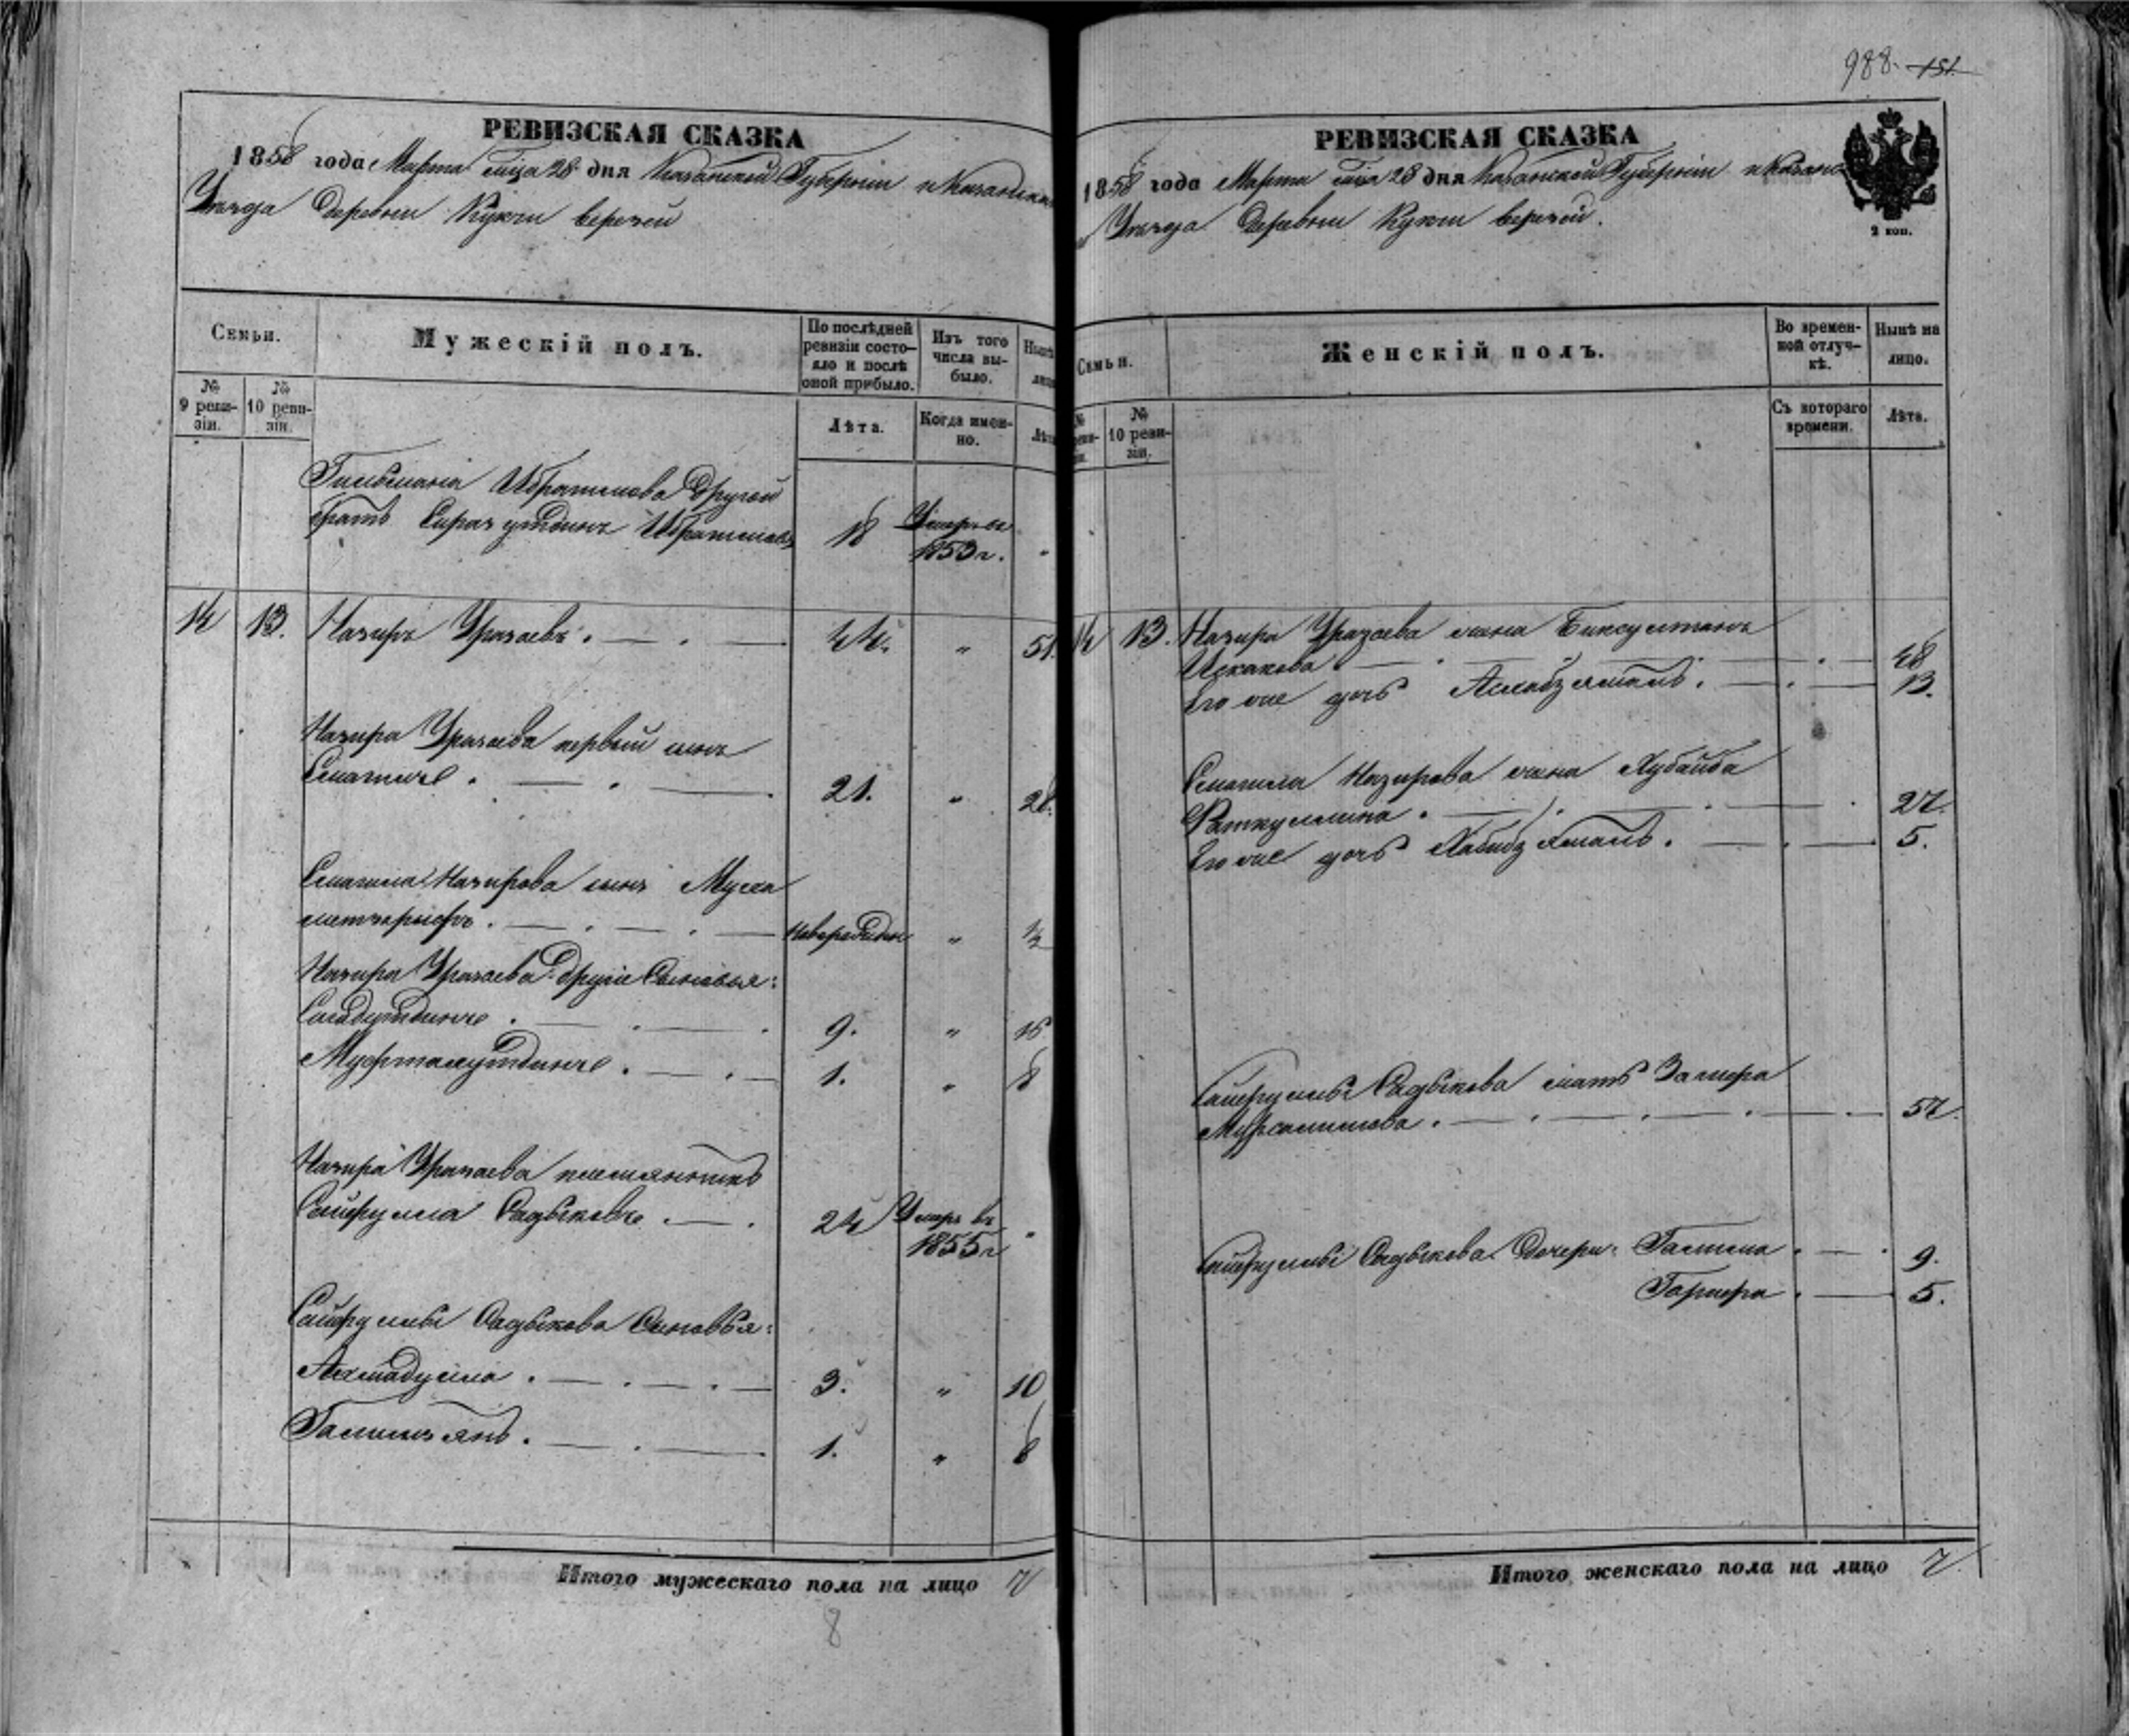 988. 151
РЕВИЗСКАЯ СКАЗКА
1858 года Марта м-ца 28 дня Казанской Губернiи и Казанска
Уѣзда Деревни Кукчи верхней
Семьи.
Мужескiй полъ.
По послѣдней ревизiи состояло и послѣ оной прибыло.
Изъ того числа выбыло.
Нынѣ лицо
№ 9 ревизiи.
№ 10 ревизiи.
Лѣта.
Когда именно.
Лѣта
Ибрагимова другой
братъ Сиразутдинъ Ибрагимовъ 18 Умеръ въ 1853 г. "
14 13. Назиръ Уразаевъ. 44. " 51.
Назира Уразаева первый сынъ
Смагилъ. 21. " 28.
Смагила Назирова сынъ Муха
метзарифъ. Новорожден " 1/2
Назира Уразаева другiе Сыновья:
Сагадутдинъ. 9. " 16
Мифтахутдинъ. 1. " 8
Назира Уразаева племянникъ
Сайфулла Садыковъ. 24 Умеръ въ 1855 г "
Сайфуллы Садыкова Сыновья:
Ахмадулла. 3. " 10
Галимзянъ. 1. " 8
Итого мужескаго пола на лицо 7
8
РЕВИЗСКАЯ СКАЗКА
1858 года Марта м-ца 28 дня Казанской Губернiи и Казанс
Уѣзда Деревни Кукчи верхней.
2 коп.
Семьи.
Женскiй полъ.
Во временной отлучкѣ.
Нынѣ на лицо.
№ 10 ревизiи.
Съ котораго времени.
Лѣта.
14 13. Назира Уразаева жена Биксултанъ
Искакова. 48
Его же дочь 13.
Смагила Назирова жена Хубайба
Фаткуллина. 27.
Его же дочь Хабибзямалъ. 5.
Сайфуллы Садыкова мать Загифа
Мурсалимова. 57.
Сайфуллы Садыкова Дочери: Галима. 9.
Гарифа. 5.
Итого женскаго пола на лицо 7